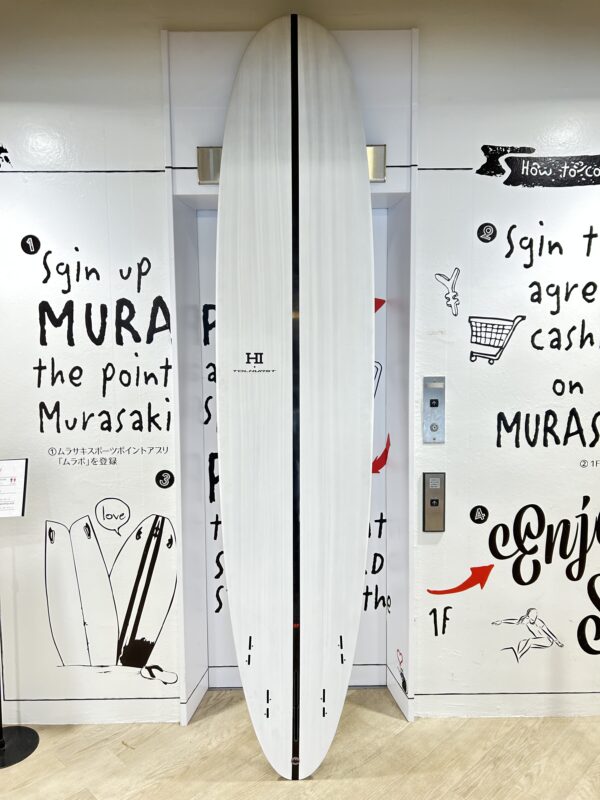 How to co
1
Sgin up
MURA
the point
Murasaki
①ムラサキスポーツポイントアプリ
「ムラポ」を登録
3
love
HI
TOLHURST
2
Sgin t
agre
cash
on
MURAS
② 1F
4
Enjo
1F
the